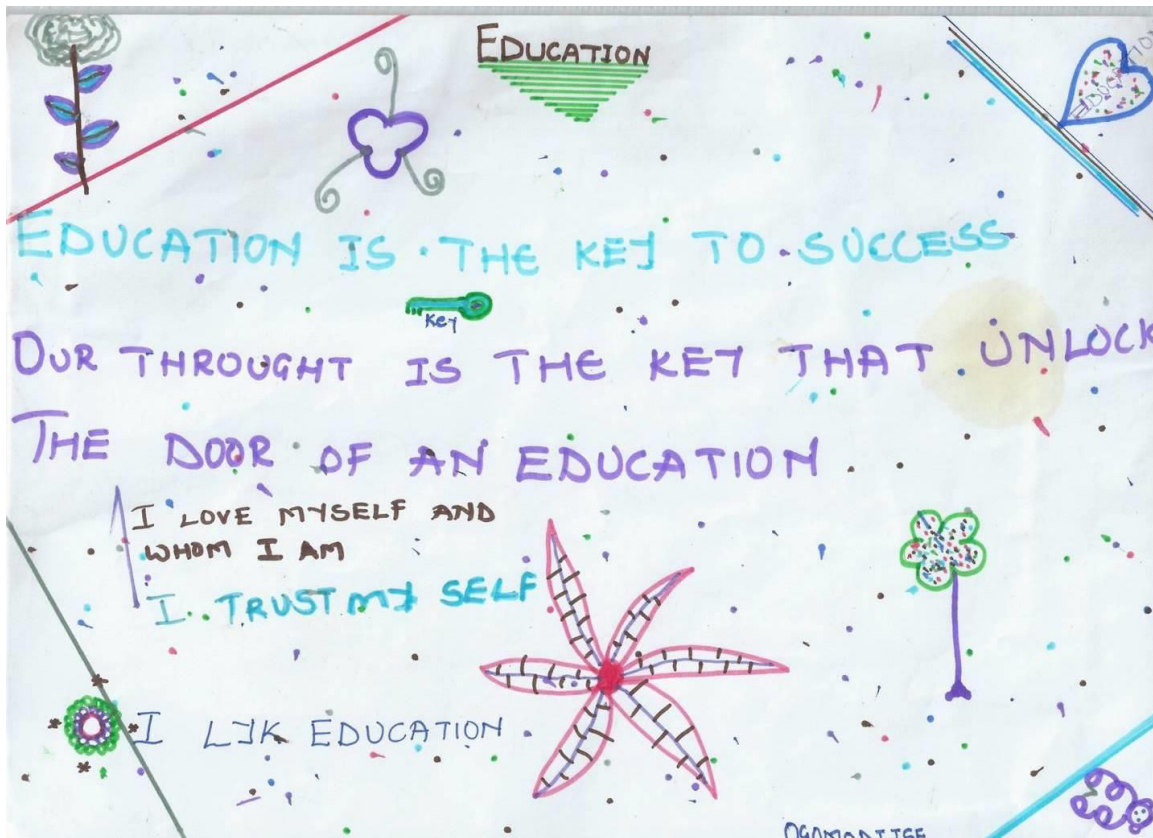 EDUCATION
EDUCATION
EDUCATION IS THE KEY TO SUCCESS
Key
OUR THROUGHT IS THE KEY THAT UNLOCK
THE DOOR OF AN EDUCATION
I LOVE MYSELF AND
WHOM I AM
I TRUST MY SELF
I LIK EDUCATION